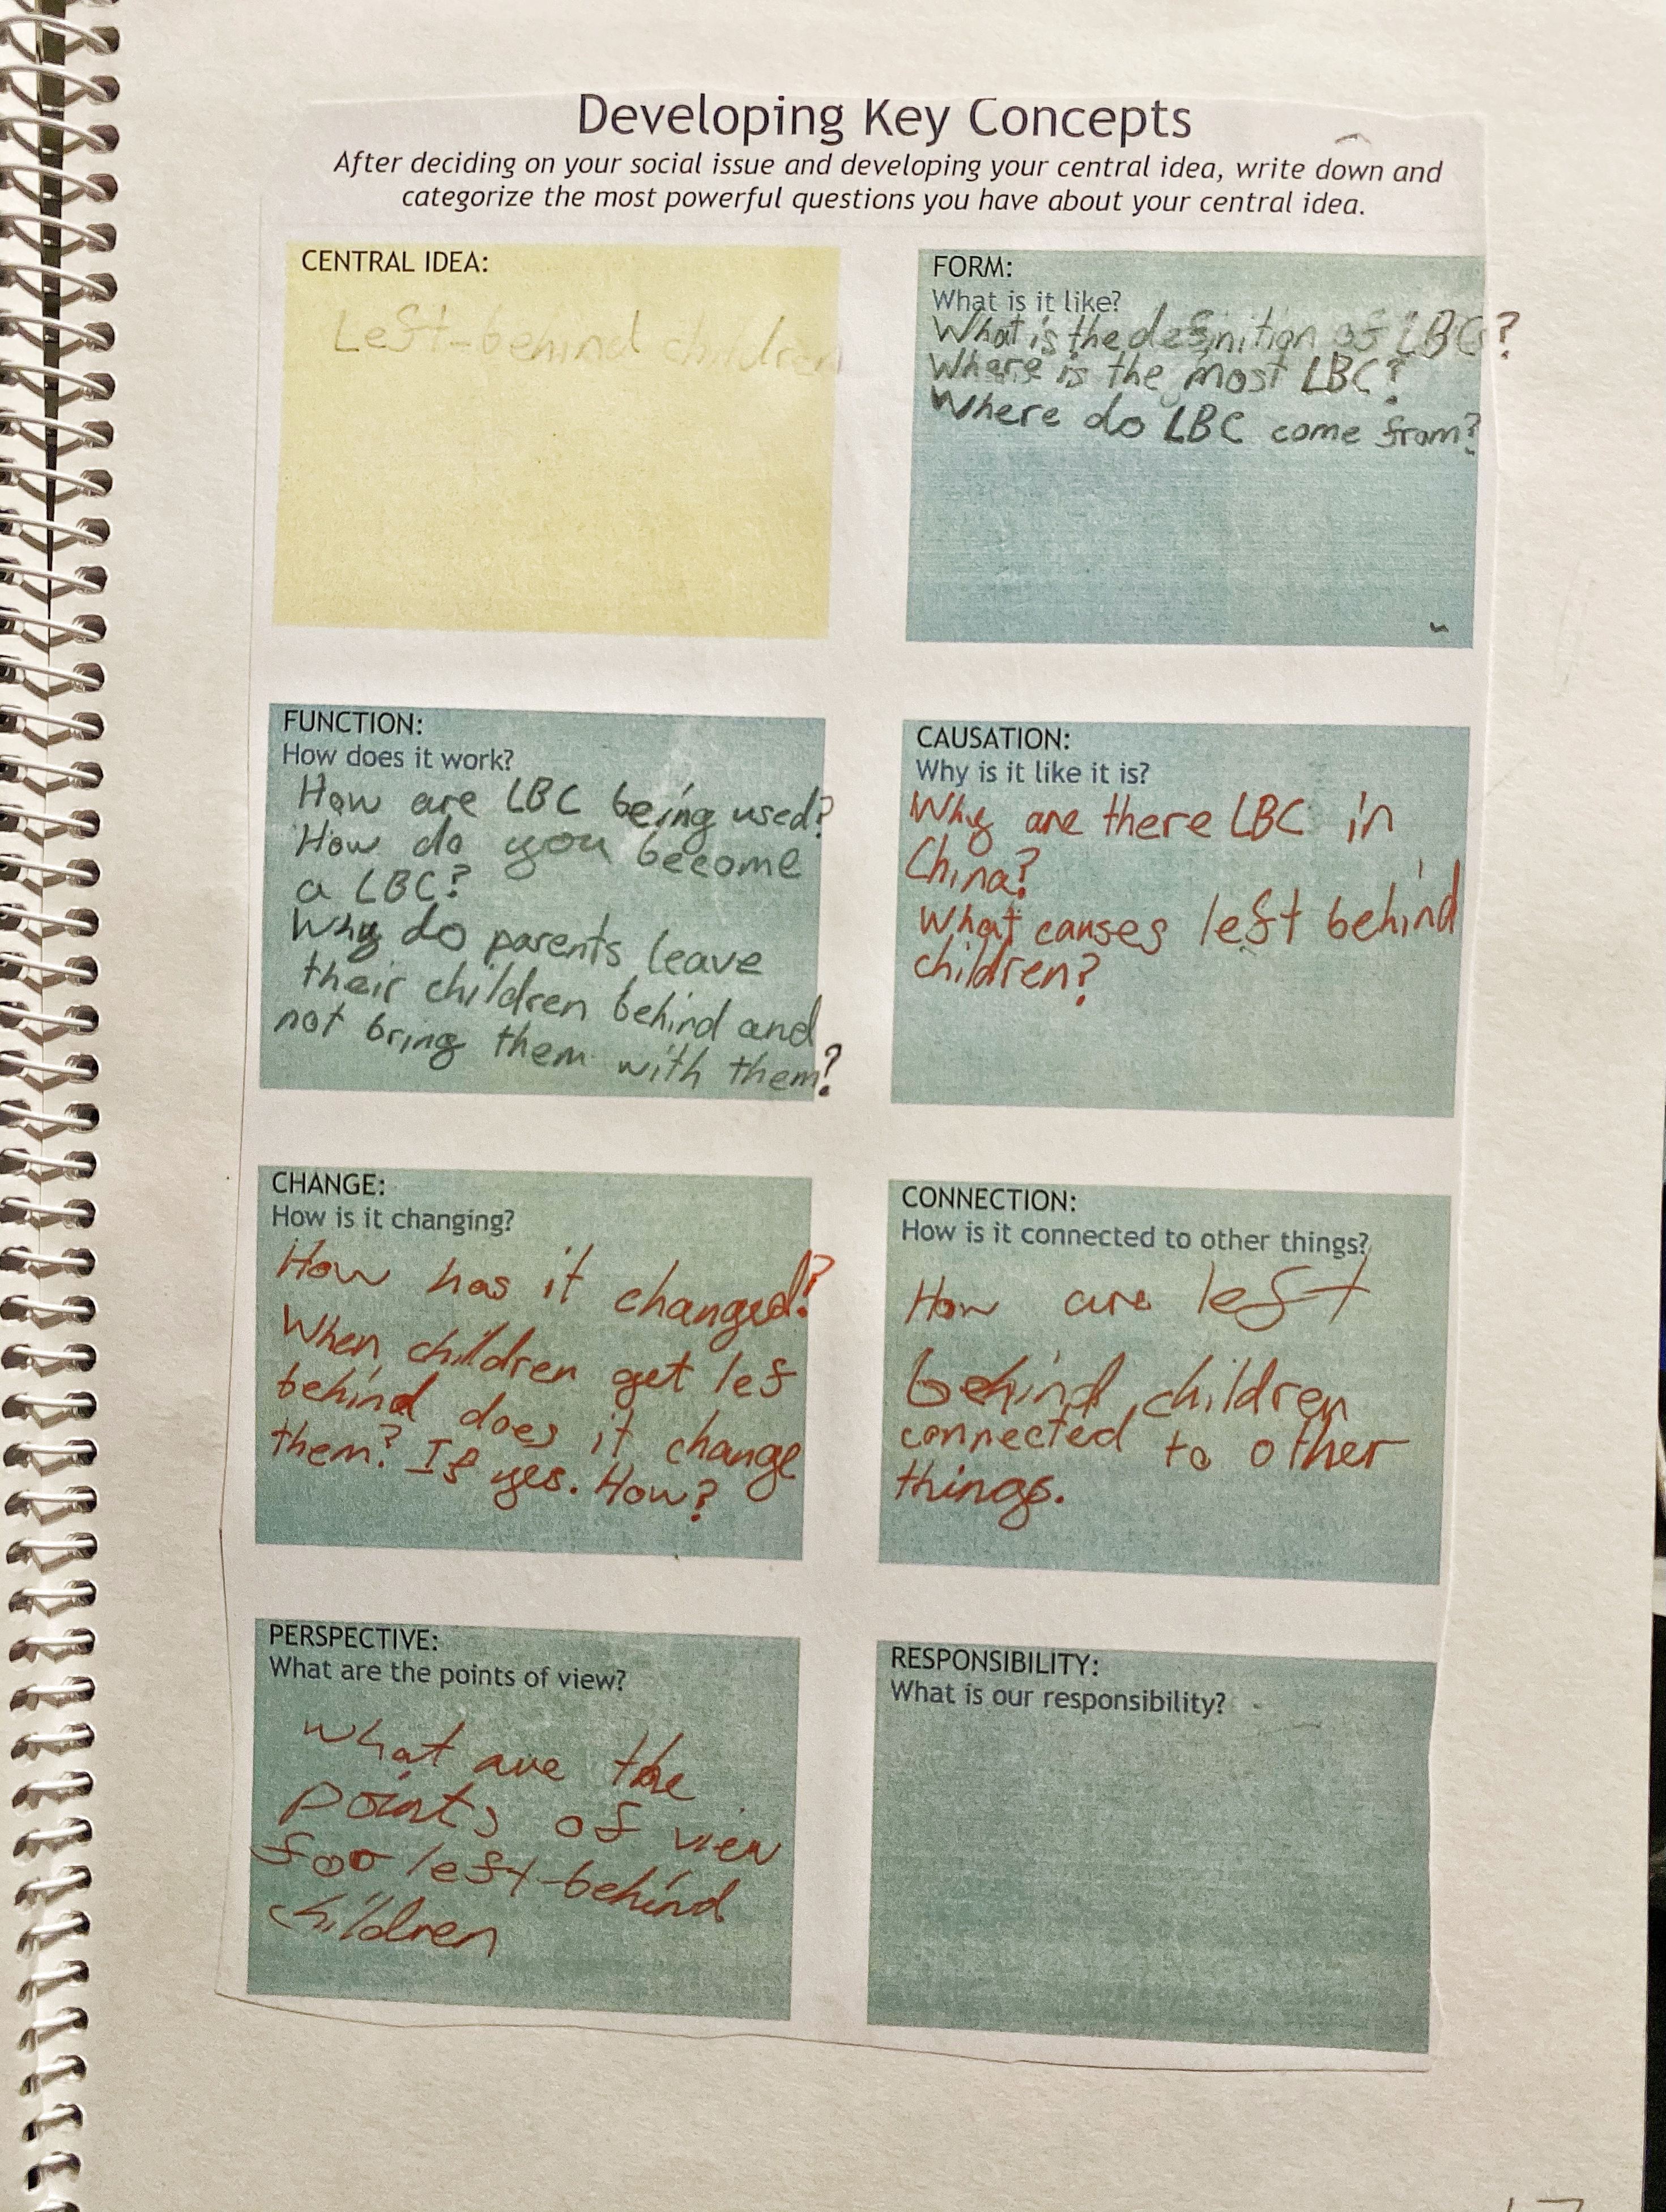 Developing Key Concepts
After deciding on your social issue and developing your central idea, write down and
categorize the most powerful questions you have about your central idea.
CENTRAL IDEA:
Left-behind children
FORM:
What is it like?
What is the definition of LBC?
Where is the most LBC?
Where do LBC come from?
FUNCTION:
How does it work?
How are LBC being used?
How do you become
a LBC?
Why do parents leave
their children behind and
not bring them with them?
CAUSATION:
Why is it like it is?
Why are there LBC in
China?
What causes left behind
children?
CHANGE:
How is it changing?
How has it changed?
When children get lef
behind does it change
them? If yes. How?
CONNECTION:
How is it connected to other things?
How are left
behind children
connected to other
things.
PERSPECTIVE:
What are the points of view?
What are the
points of view
foo left-behind
children
RESPONSIBILITY:
What is our responsibility?